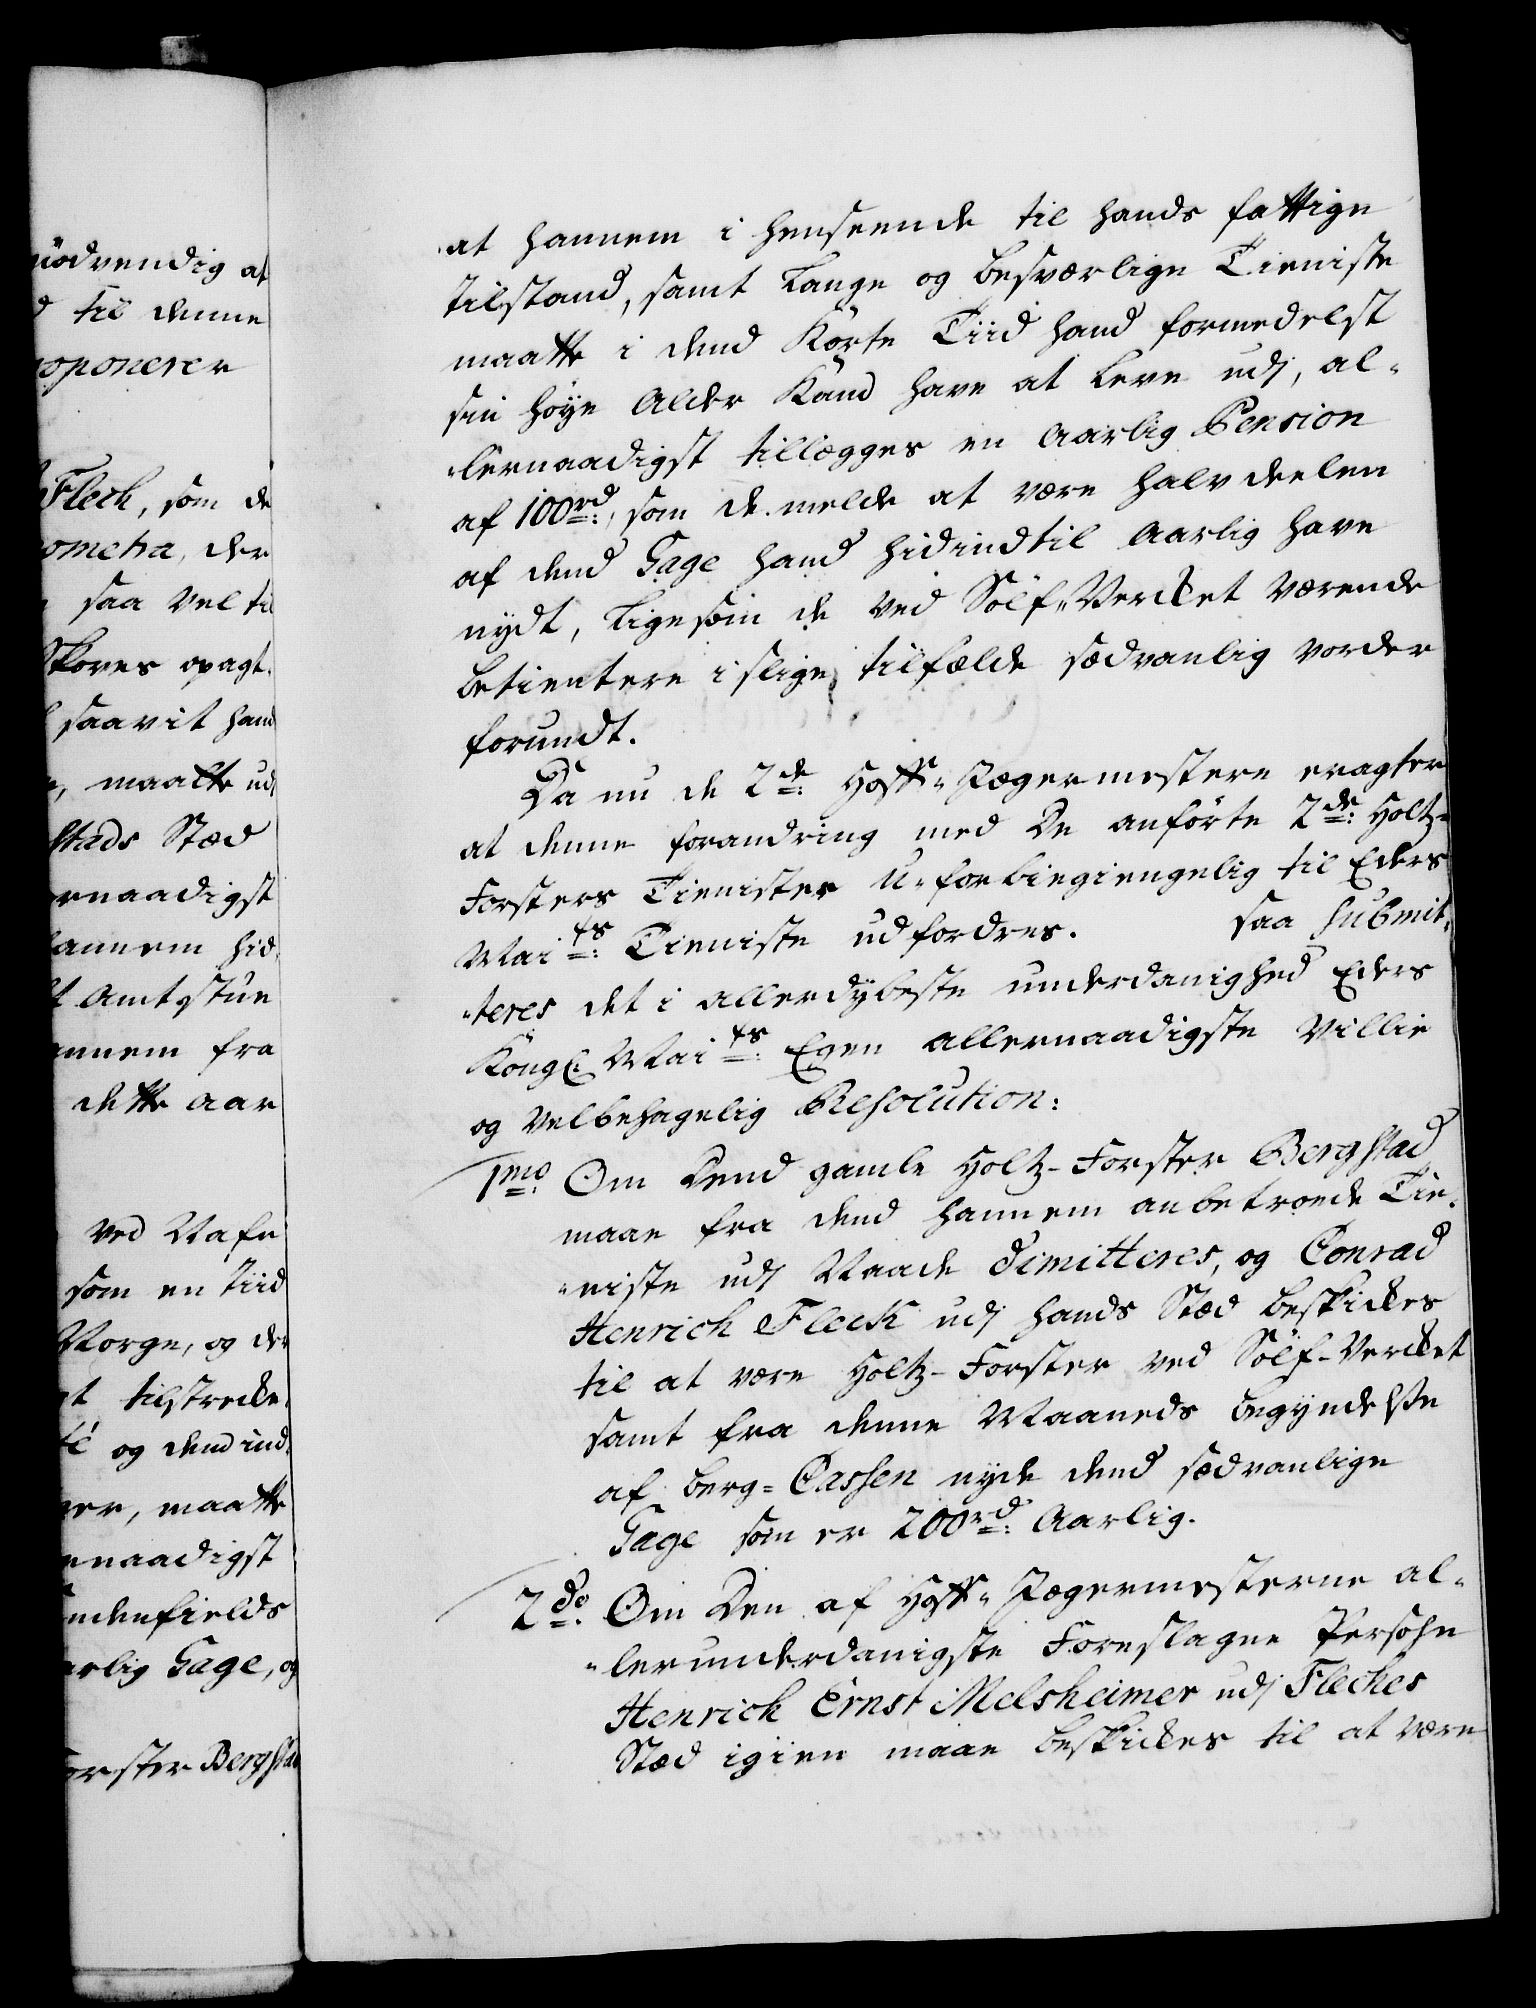 nödvendig af
til denne
oponerer
Fleck, som de
ometra, der
saa vel til
Skoves opagt
saavit hand
maatte udj
stads Stæd
ernaadigst
hannem hid
Amtstue
annem fra
dette aar
ved Nafn
som en tiid
Norge, og der
tilstrecke
og dend ind
er, maatte
ernaadigst
ndenfields
arlig Gage, og
orster Bergstad
at hannem i henseende til hands fattige
tilstand, samt lange og besværlige Tieniste
maatte i dend korte Tiid hand formedelst
sin høye Alder kand have at leve udj, al-
lernaadigst tillegges en Aarlig Pension
af 100 rd:, som de melde at være halvdeelen
af dend Gage hand hidindtil Aarlig have
nydt, ligesom de ved Sölf-Verket værende
betientere i slige tilfælde sædvanlig vorder
forundt.
Da nu de 2de: Hoff-Jægermestere eragter
at denne forandring med De anförte 2de: Holtz-
Forsters Tienister U-forbiegiengelig til Eders
Maits: Tieniste udfordres. saa submit-
teres det i allerdybeste underdanighed Eders
Kongl. Maits: Egen allernaadigste Villie
og Velbehagelig Resolution:
1mo: Om Dend gamle Holtz-Forster Bergstad
maae fra dend hannem anbetroede Tie-
niste udj Naade dimitteres, og Conrad
Henrich Fleck udj hands Stæd beskickes
til at være Holtz-Forster ved Sölf-Verket
samt fra denne Maaneds begyndelse
af Berg-Cassen nyde dend sædvanlige
Gage som er 200 rd: Aarlig.
2do: Om Den af Hoff-Jægermesterne al-
lerunderdanigste Foreslagne Persohn
Henrich Ernst Melsheimer udj Fleckes
Stæd igien maae beskickes til at være